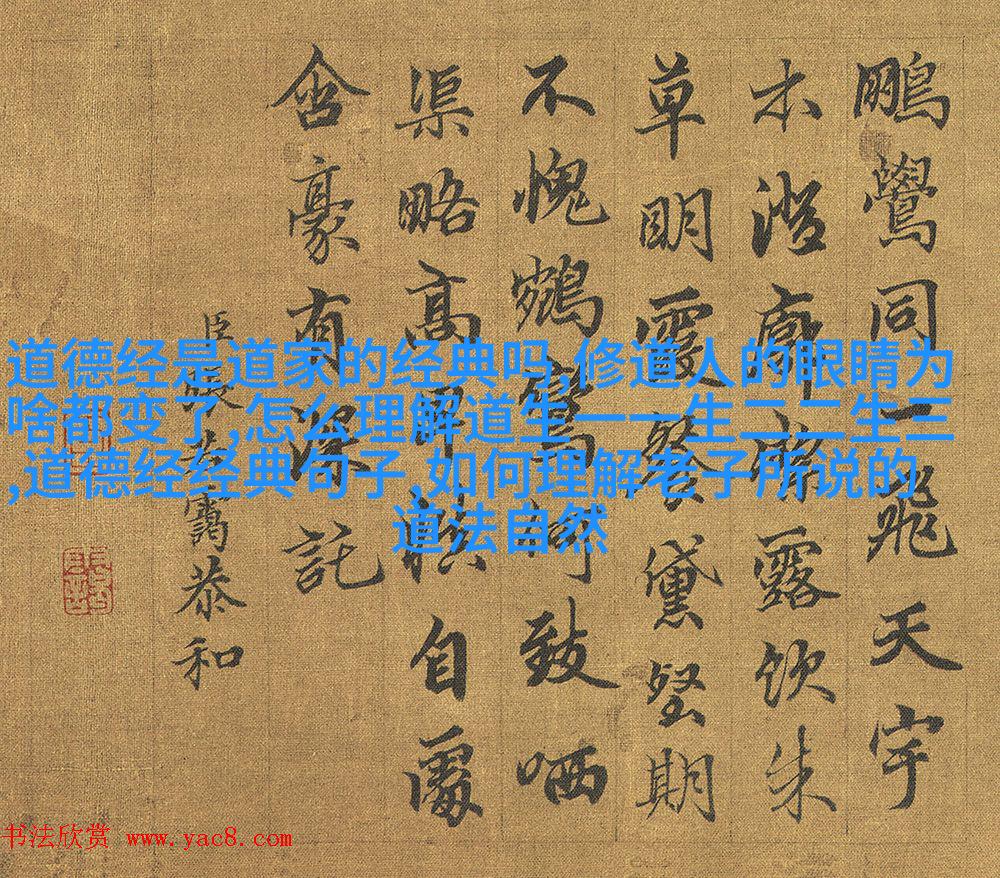 鵬鷽同一飛天宇
木澄廓露飲朱
草明霞黛堅期
不愧鶴致哂
渠略高自
含豪有深託
臣張若靄恭和
道德经是道家的经典吗,修道人的眼睛为
啥都变了,怎么理解道生一一生二二生三
,道德经经典句子,如何理解老子所说的
道法自然
书法欣赏 www.yac8.com